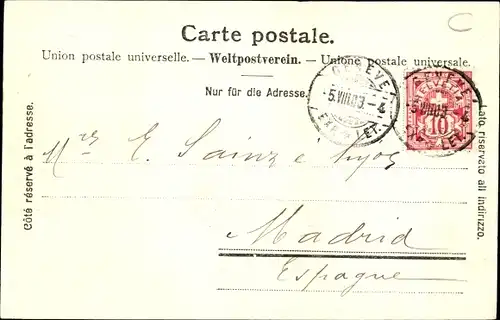 Carte postale.
Union postale universelle. — Weltpostverein. — Unione postale universale.
Nur für die Adresse.
Côté réservé à l'adresse.
Lato riservato all indirizzo.
GENEVE
5.VIII.03 - 4
EXP. LET.
GENEVE
HELVETIA
5.VIII.03
10
LET.
E. Sainz e hijos
Madrid
Espagne